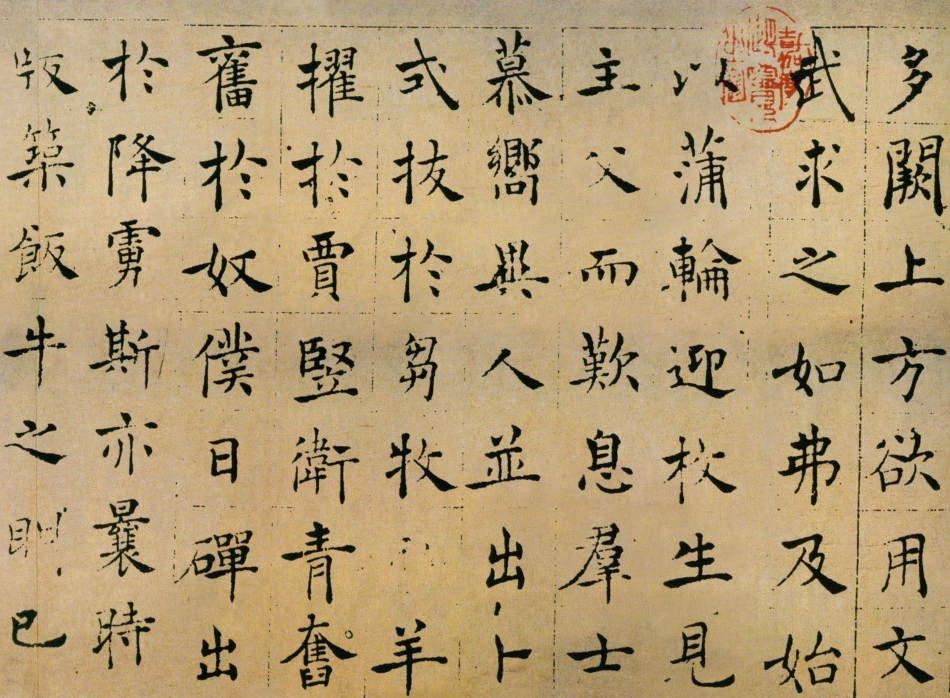 多闕上方欲用文
武求之如弗及始
以蒲輪迎枚生見
主父而歎息羣士
慕嚮異人並出卜
式拔於芻牧羊
擢於賈豎衛青奮
奮於奴僕日磾出
於降虜斯亦曩時
版築飯牛之明已